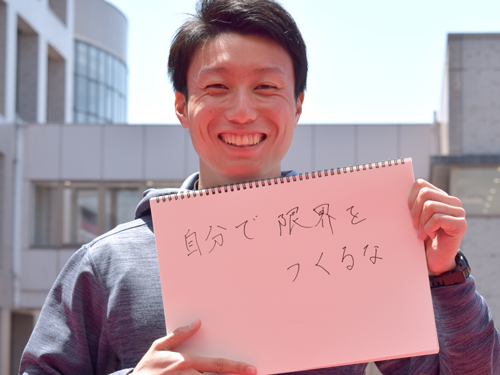 自分で 限界を
つくるな